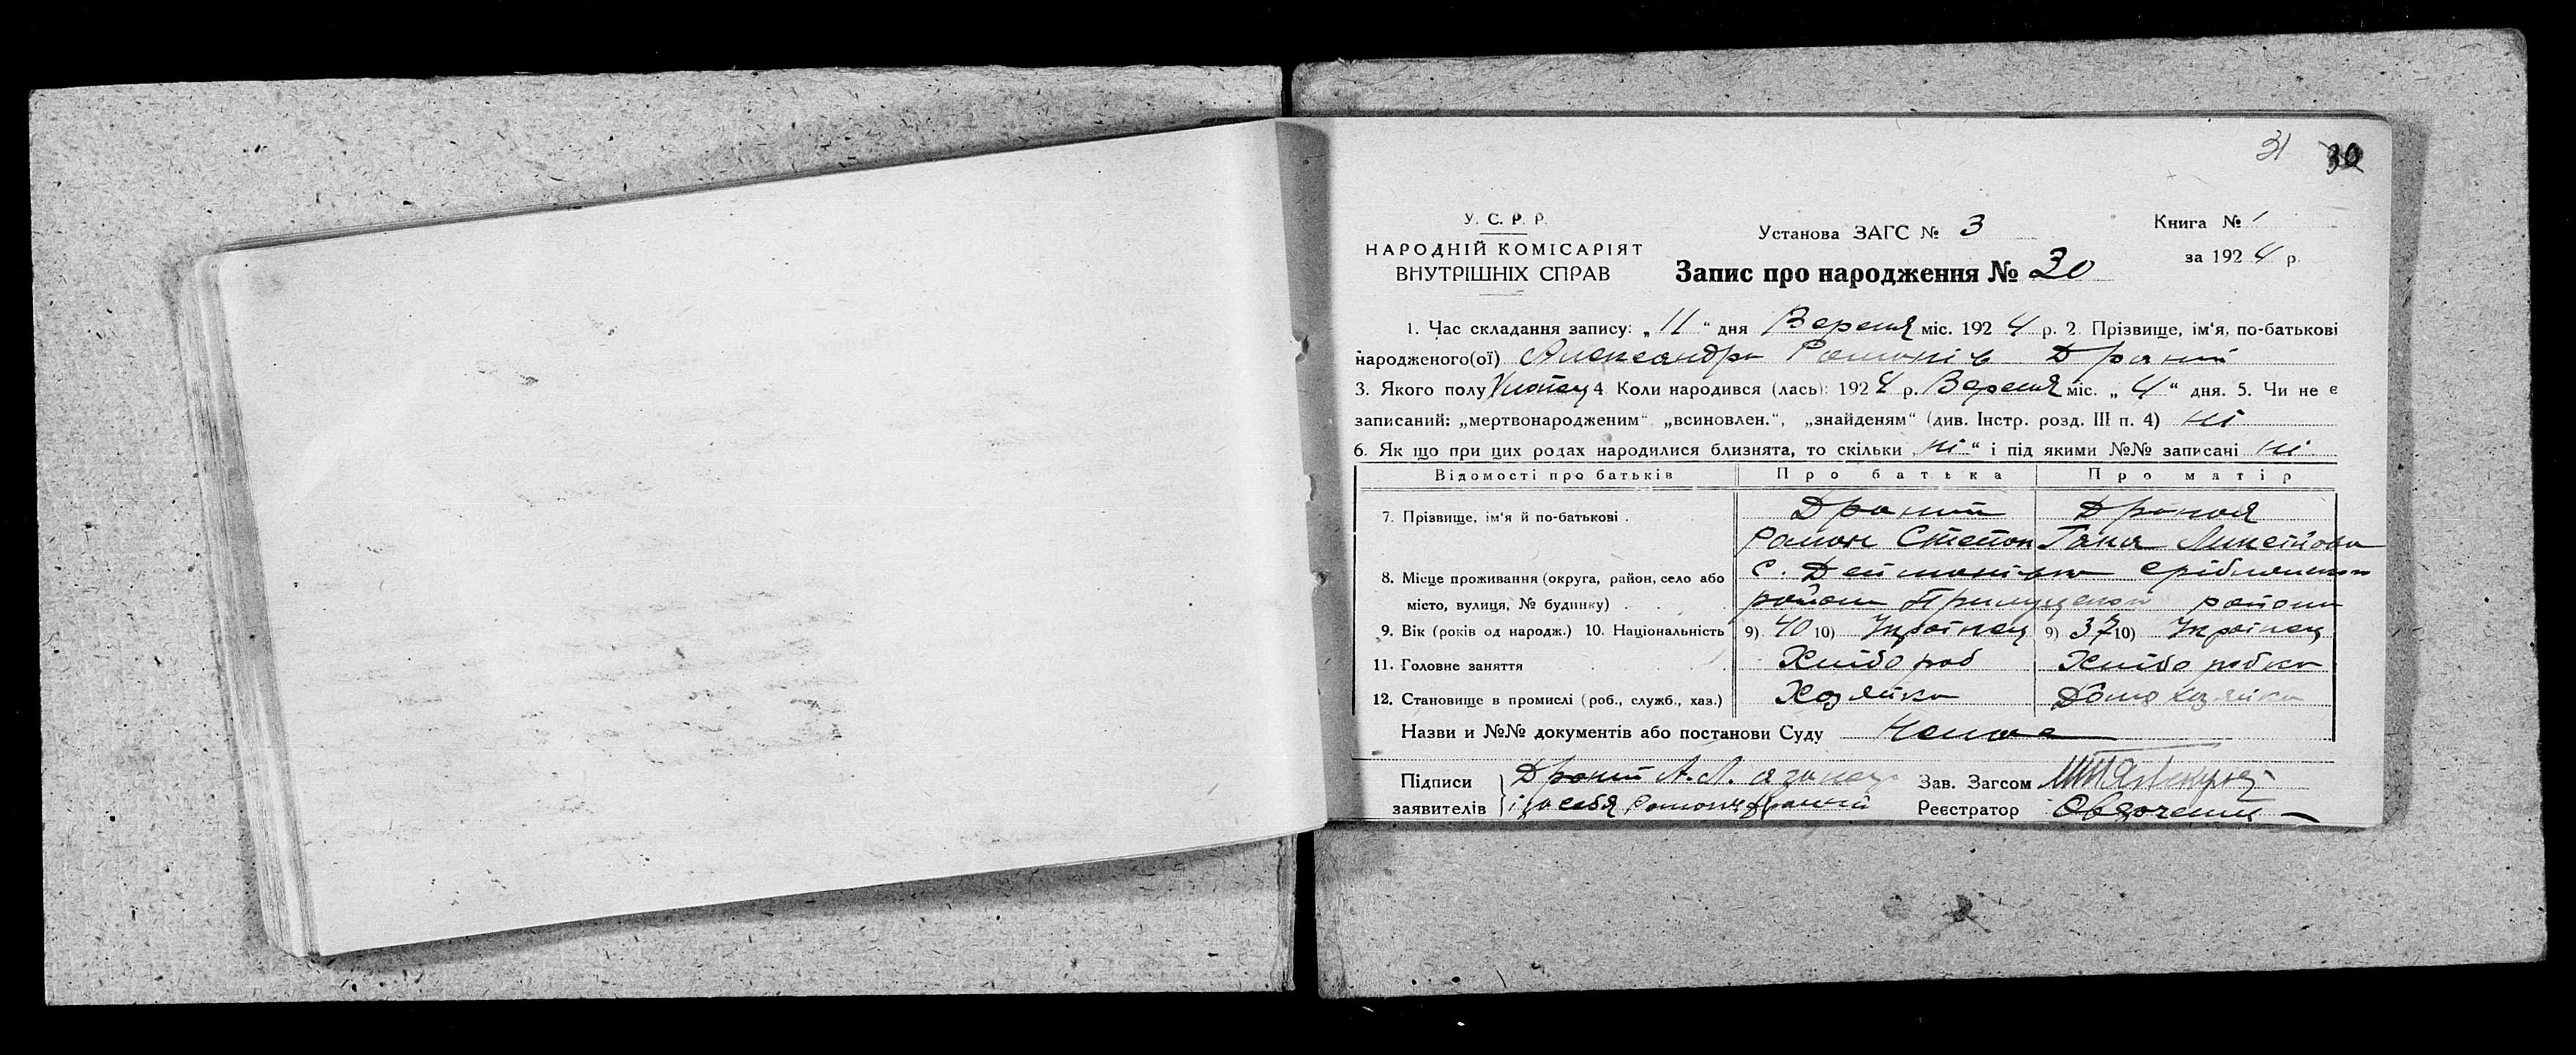 31 30
У. С. Р. Р.
НАРОДНІЙ КОМІСАРІЯТ
ВНУТРІШНІХ СПРАВ
Установа ЗАГС № 3
Книга № 1
за 1924 р.
Запис про народження № 30
1. Час складання запису: „11“ дня Вересня міс. 1924 р. 2. Прізвище, ім'я, по-батькові
народженого(ої) Александр Романів Драний
3. Якого полу Хлопец 4. Коли народився (лась): 1924 р. Вересня міс. „4“ дня. 5. Чи не є
записаний: „мертвонародженим“ „всиновлен.“, „знайденям“ (див. Інстр. розд. III п. 4) ні
6. Як що при цих родах народилися близнята, то скільки „ні“ і під якими №№ записані ні
Відомості про батьків Про батька Про матір
7. Прізвище, ім'я й по-батькові . Драний Драная
Роман Степан Гана
8. Місце проживання (округа, район, село або с. Дейманівка Срібнянского
місто, вулиця, № будинку) . района Прилуцкой района
9. Вік (років од народж.) 10. Національність 9) 40 10) Українец 9) 37 10) Українец
11. Головне заняття Хлібороб Хліборобка
12. Становище в промислі (роб., служб., хаз.) Хозяйка Домохозяйка
Назви и №№ документів або постанови Суду Немає
Підписи Драний А. Л. а за нег
заявителів і за себя Роман Драний
Зав. Загсом
Реєстратор